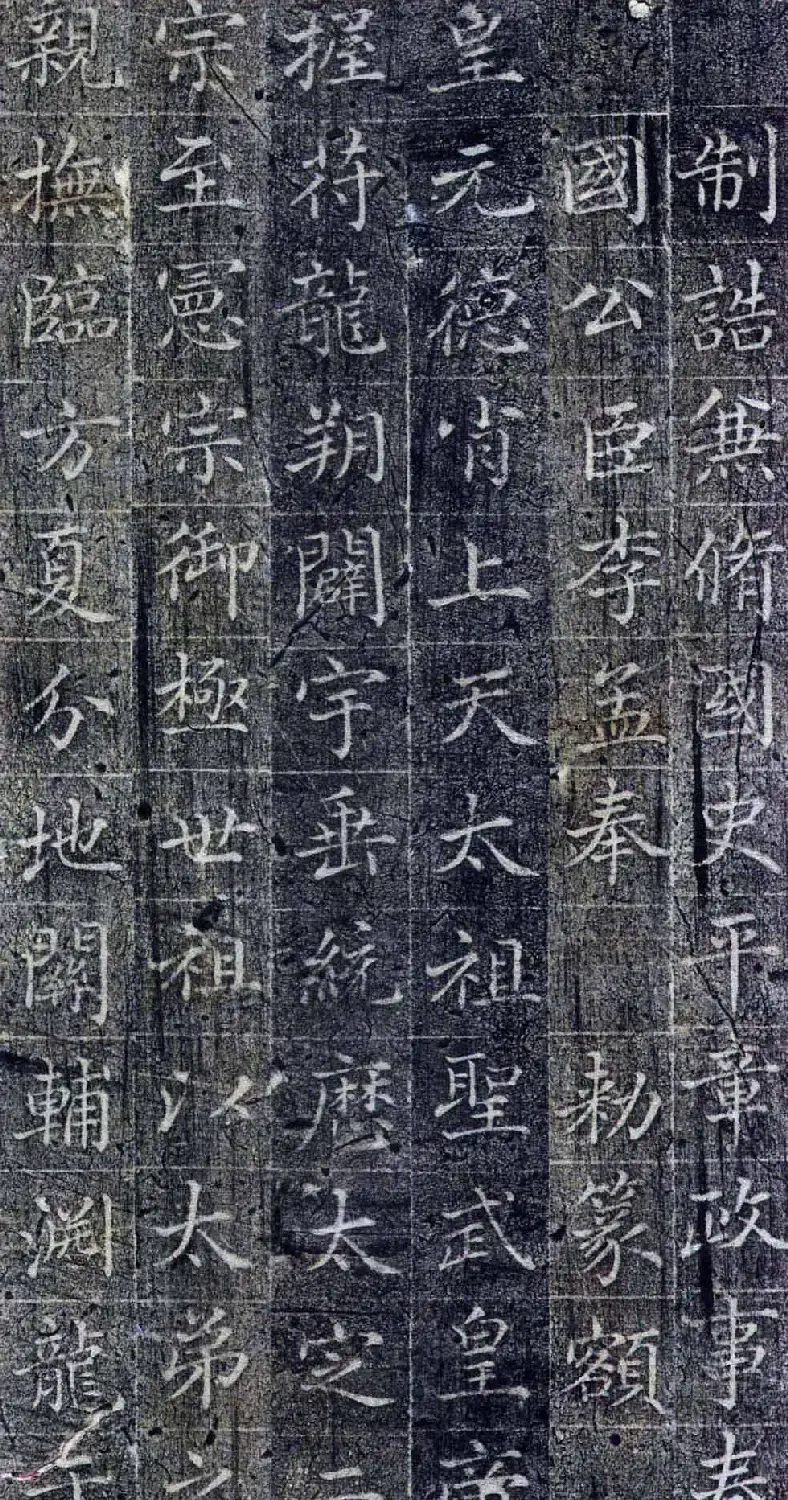 制誥兼脩國史平章政事春
國公臣李孟奉 勅篆額
皇元德肖上天太祖聖武皇帝
握符龍朔闢宇垂統歷太㝎二
宗至憲宗御極世祖以太弟之
親撫臨方夏分地關輔渊龍于